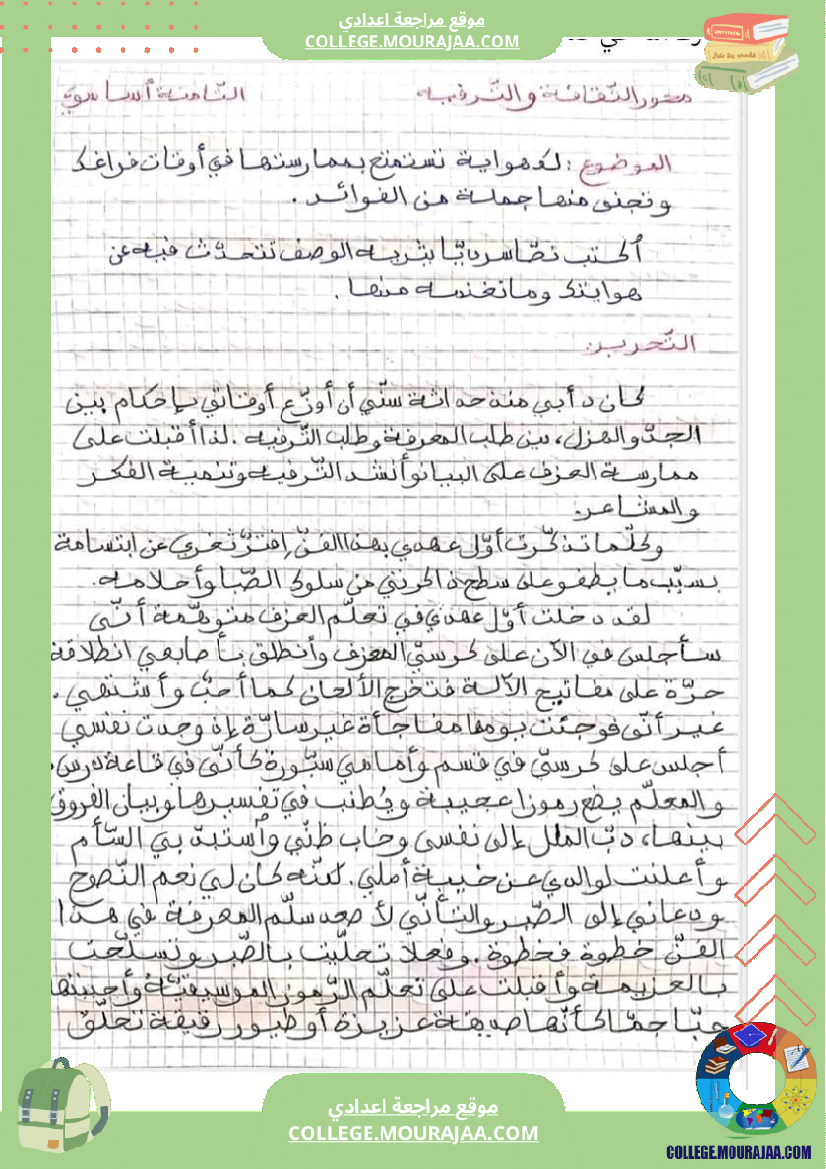 موقع مراجعة اعدادي
COLLEGE.MOURAJAA.COM
محور الثّقافة والتّرفيه
الثّامنة أساسي
الموضوع: لك هواية تستمتع بممارستها في أوقات فراغك
وتجني منها جملة من الفوائد.
أكتب نصّا سرديّا يثريه الوصف تتحدّث فيه عن
هوايتك وما تغنمه منها.
التّحرير:
كان دأبي منذ حداثة سنّي أن أوزّع أوقاتي بإحكام بين
الجدّ والهزل، بين طلب المعرفة وطلب التّرفيه. لذا أقبلت على
ممارسة العزف على البيانو أنشد التّرفيه وتنمية الفكر
والمشاعر.
وكلّما تذكّرت أوّل عهدي بهذا الفنّ إفترّ ثغري عن ابتسامة
بسبب ما يطفو على سطح ذاكرتي من سلوك الصّبا وأحلامه.
لقد دخلت أوّل عهدي في تعلّم العزف متوهّمة أنّي
سأجلس في الآن على كرسيّ المعزف وأنطلق بأصابعي انطلاقة
حرّة على مفاتيح الآلة فتخرج الألحان كما أحبّ وأشتهي.
غير أنّي فوجئت يومها مفاجأة غير سارّة إذ وجدت نفسي
أجلس على كرسيّ في قسم وأمامي سبّورة كأنّي في قاعة درس.
والمعلّم يضع رموزا عجيبة ويُطنب في تفسيرها وبيان الفروق
بينها، دبّ الملل إلى نفسي وخاب ظنّي وأستبدّ بي السّأم
وأعلنت لوالدي عن خيبة أملي. لكنّه كان لي نعم النّصوح
ودعاني إلى الصّبر والتّأنّي لأصعد سلّم المعرفة في هذا
الفنّ خطوة فخطوة. وفعلا تحلّيت بالصّبر وتسلّحت
بالعزيمة وأقبلت على تعلّم الرّموز الموسيقيّة وأحببتها
حبّا جمّا كأنّها صديقة عزيزة أو طيور رقيقة تحلّق
موقع مراجعة اعدادي
COLLEGE.MOURAJAA.COM
COLLEGE.MOURAJAA.COM